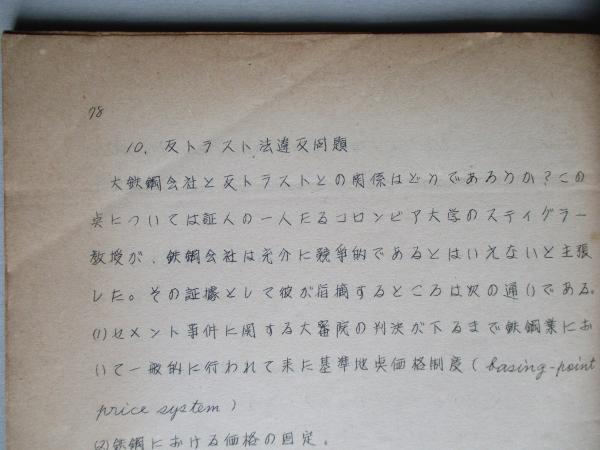 78
10. 反トラスト法違反問題
大鉄鋼会社と反トラストとの関係はどうであろうか?この
点については証人の一人たるコロンビア大学のスティグラー
教授が、鉄鋼会社は充分に競争的であるとはいえないと主張
した。その証據として彼が指摘するところは次の通りである。
(1)セメント事件に関する大審院の判決が下るまで鉄鋼業にお
いて一般的に行われて来た基準地点価格制度(basing-point
price system)
(2)鉄鋼における価格の固定。